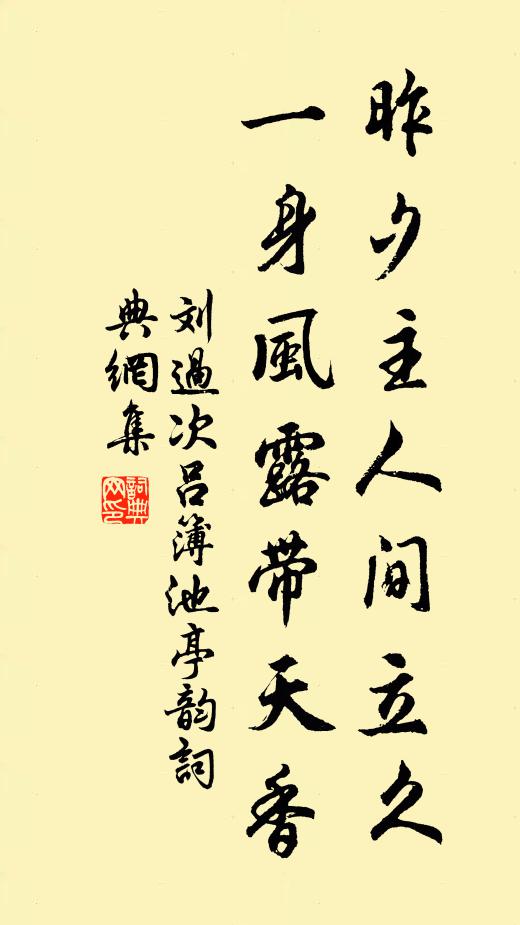 昨夕主人间立久
一身風露带天香
刘過次吕簿池亭韵詞
典網集
詞典
网印